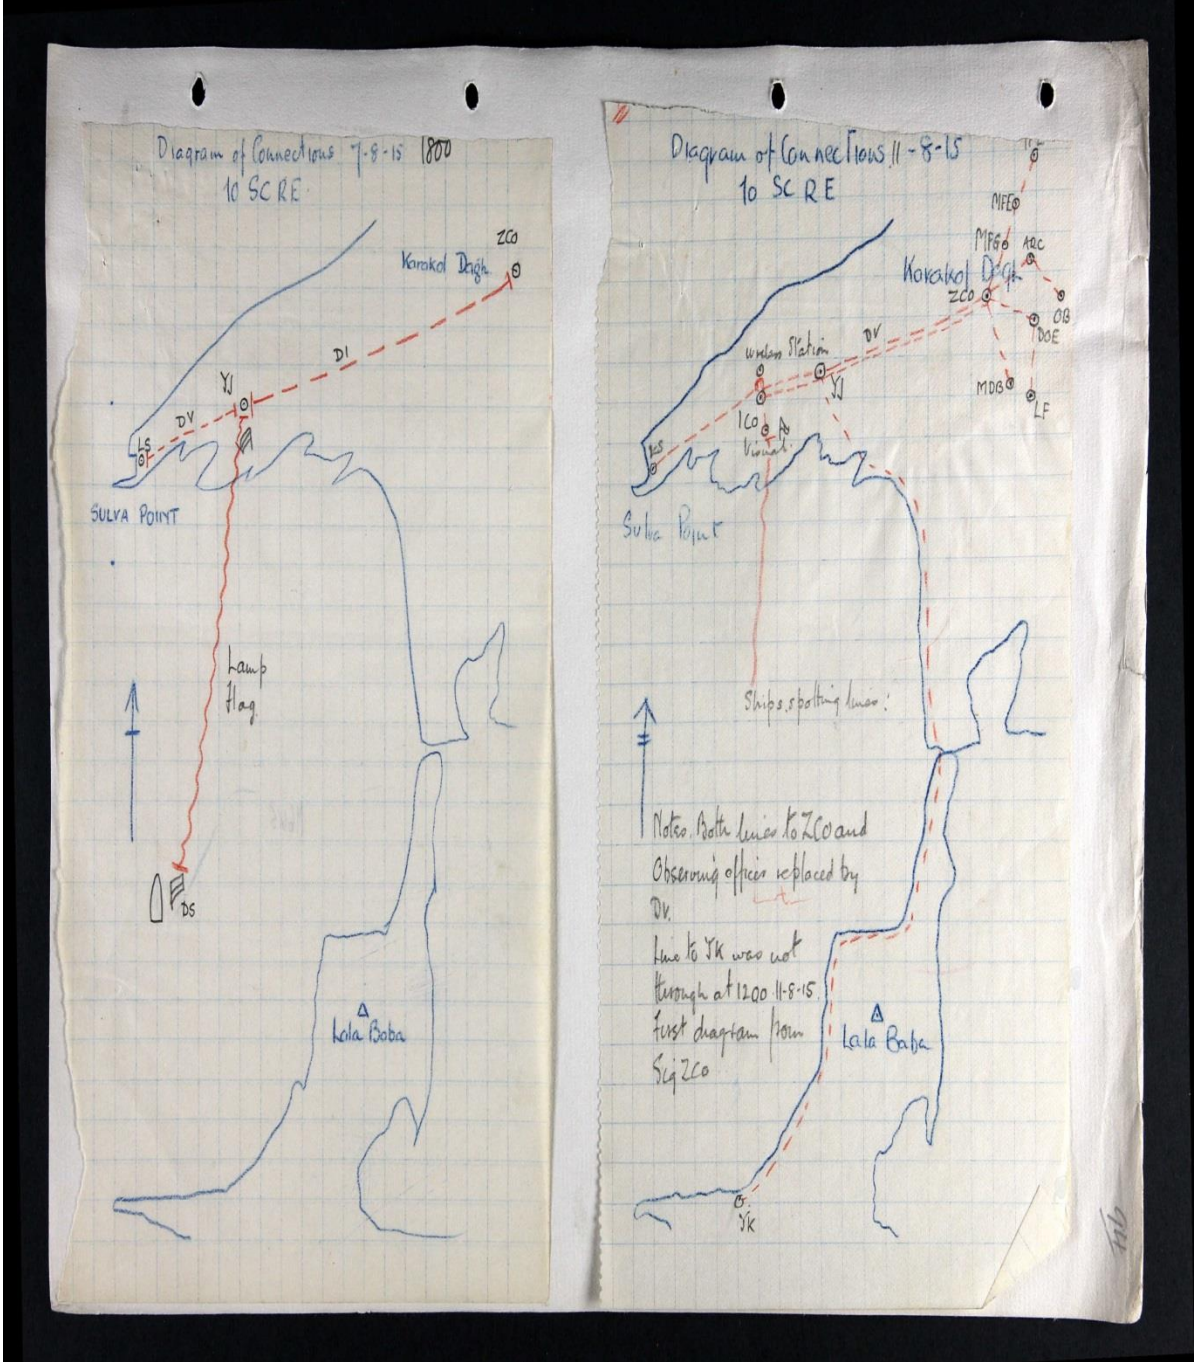 Diagram of Connections 7-8-15 1800
10 SC RE
ZCO
Karakol Dagh
DI
YJ
DV
LS
SULVA POINT
Lamp
Flag
DS
Lala Baba
Diagram of Connections 11-8-15
10 SC RE
MFE
MFG
AQC
Karakol Dagh
ZCO
OB
DOE
DV
Wireless Station
YJ
MDB
LF
ICO
Visual
Sulva Point
Ships spotting lines:
Notes. Both lines to ZCO and
Observing offices replaced by
DV.
Line to YK was not
through at 1200 11-8-15
First diagram from
Sig ZCO
Lala Baba
YK